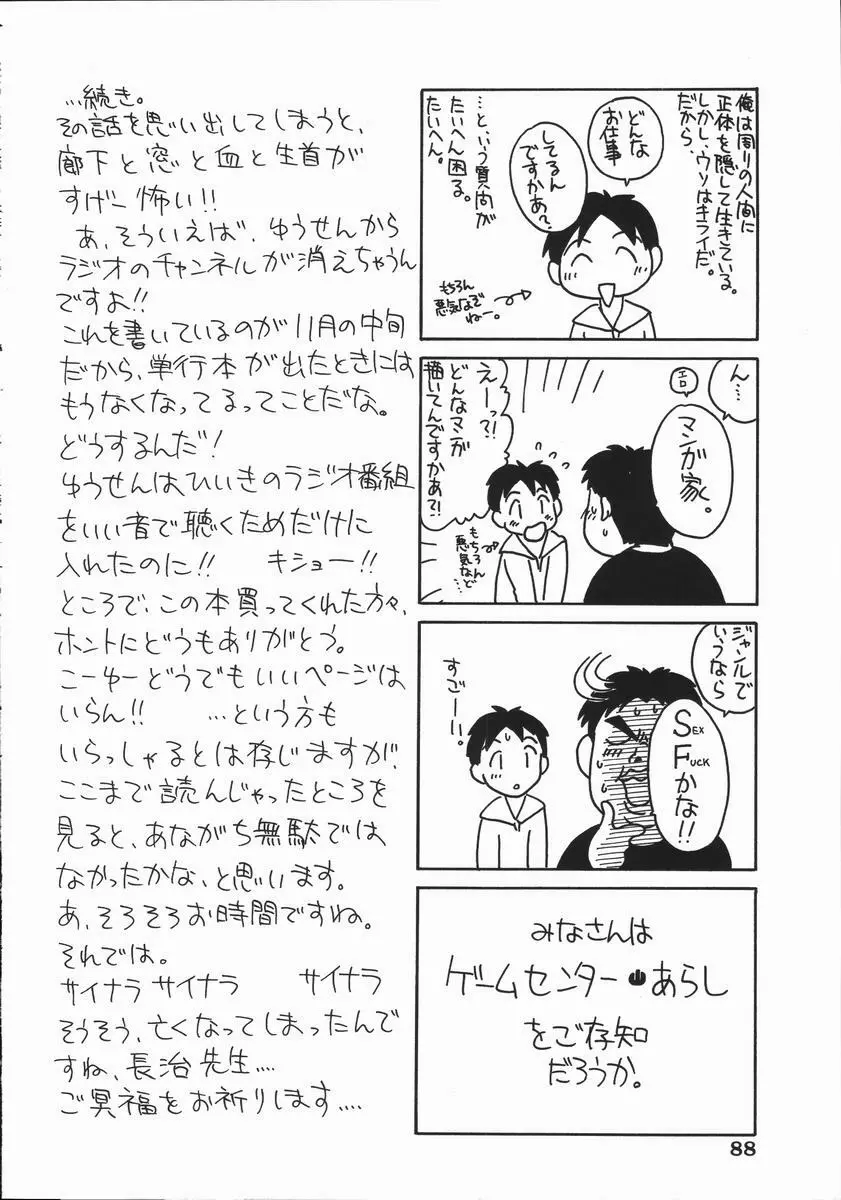 俺は周りの人間に
正体を隠して生きている。
しかし、ウソはキライだ。
だから、
どんな
お仕事
してるん
ですかあ?
…という質問が
たいへん困る。
たいへん。
もちろん
悪気なぞ
ねー。
ん…
エロ
マンガ家。
えーっ?!
どんなマンガ
描いてんですかあ?!
もちろん
悪気など
…
ジャンルで
いうなら
SEX
FUCK
かな!!
すごーい。
みなさんは
ゲームセンターあらし
をご存知
だろうか。
…続き。
その話を思い出してしまうと、
廊下と窓と血と生首が
すげー怖い!!
あ、そういえば、ゆうせんから
ラジオのチャンネルが消えちゃうん
ですよ!!
これを書いているのが11月の中旬
だから、単行本が出たときには
もうなくなってるってことだな。
どうするんだ!
ゆうせんはひいきのラジオ番組
をいい音で聴くためだけに
入れたのに!! キショー!!
ところで、この本買ってくれた方々、
ホントにどうもありがとう。
こーゆーどうでもいいページは
いらん!! …という方も
いらっしゃるとは存じますが、
ここまで読んじゃったところを
見ると、あながち無駄では
なかったかな、と思います。
あ、そろそろお時間ですね。
それでは。
サイナラ サイナラ サイナラ
そうそう、亡くなってしまったんで
すね、長治先生…
ご冥福をお祈りします…
88